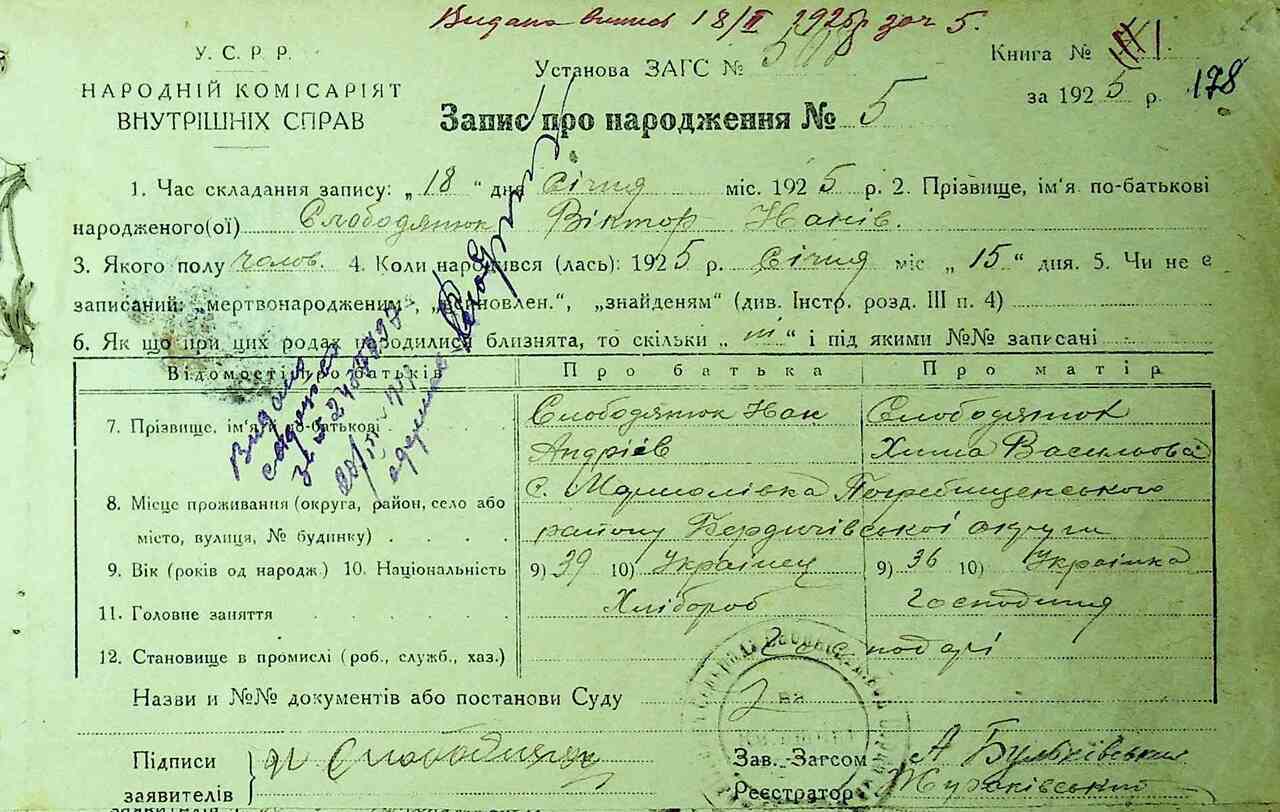 Видана 18/II 1925р
У. С. Р. Р.
НАРОДНІЙ КОМІСАРІЯТ
ВНУТРІШНІХ СПРАВ
Установа ЗАГС №
Книга № XI.
за 1925 р. 178
Запис про народження № 5
1. Час складання запису: „ 18 “ дня Січня міс. 1925 р. 2. Прізвище, ім'я по-батькові
народженого(ої) Слободянюк Віктор Нанів.
3. Якого полу чолов. 4. Коли народився (лась): 1925 р. Січня міс „ 15 “ дня. 5. Чи не є
записаний: „мертвонародженим“, „всиновлен.“, „знайденям“ (див. Інстр. розд. III п. 4)
6. Як що при цих родах народилися близнята, то скільки „ “ і під якими №№ записані
Відомості про батьків Про батька Про матір
7. Прізвище, ім'я й по-батькові Слободянюк Нан Слободянюк
Андрієв Хима Васильова
8. Місце проживання (округа, район, село або с. Погребищенського
місто, вулиця, № будинку) району Бердичівської округи
9. Вік (років од народж.) 10. Національність 9) 39 10) Українец 9) 36 10) Українка
11. Головне заняття Хлібороб Господиня
12. Становище в промислі (роб., служб., хаз.) Господарі
Назви и №№ документів або постанови Суду
Підписи
заявителів
Слободянюк
Зав. Загсом А
Реєстратор
Видано